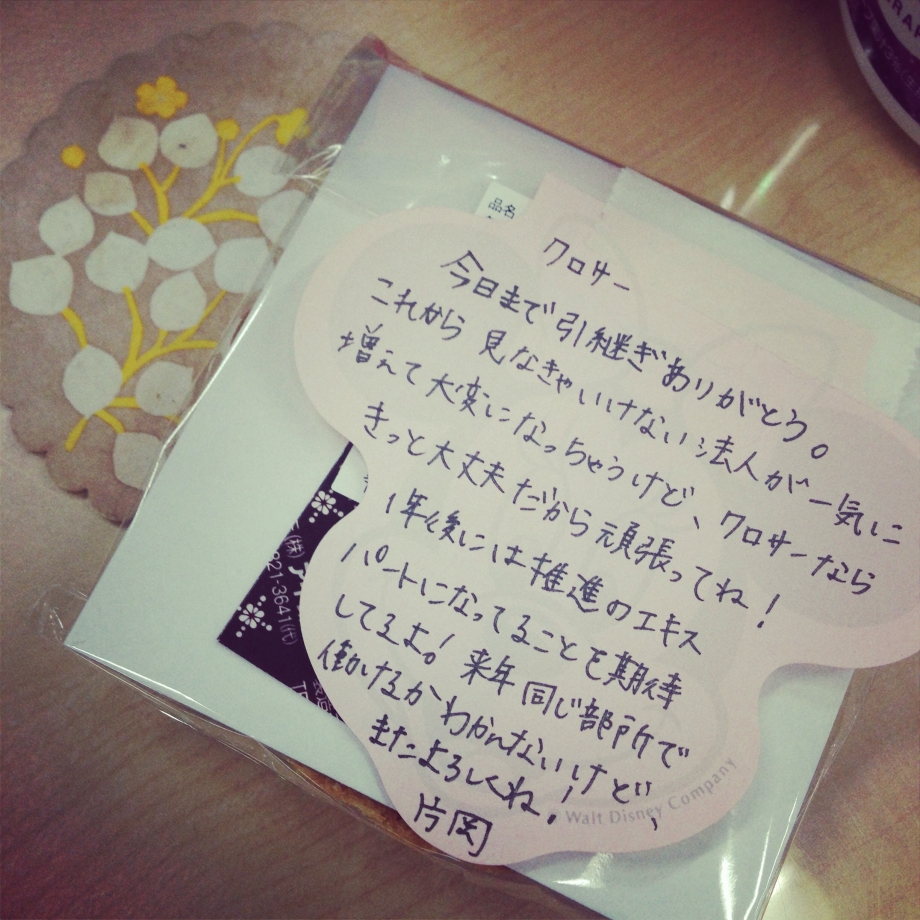 品名
クロサー
今日まで引継ぎありがとう。
これから見なきゃいけない法人が一気に
増えて大変になっちゃうけど、クロサーなら
きっと大丈夫だから頑張ってね!
1年後には推進のエキス
パートになってることを期待
してるよ!来年同じ部所で
働けるかわかんないけど、
またよろしくね!
片岡
Walt Disney Company
(株)
221-3641(代)